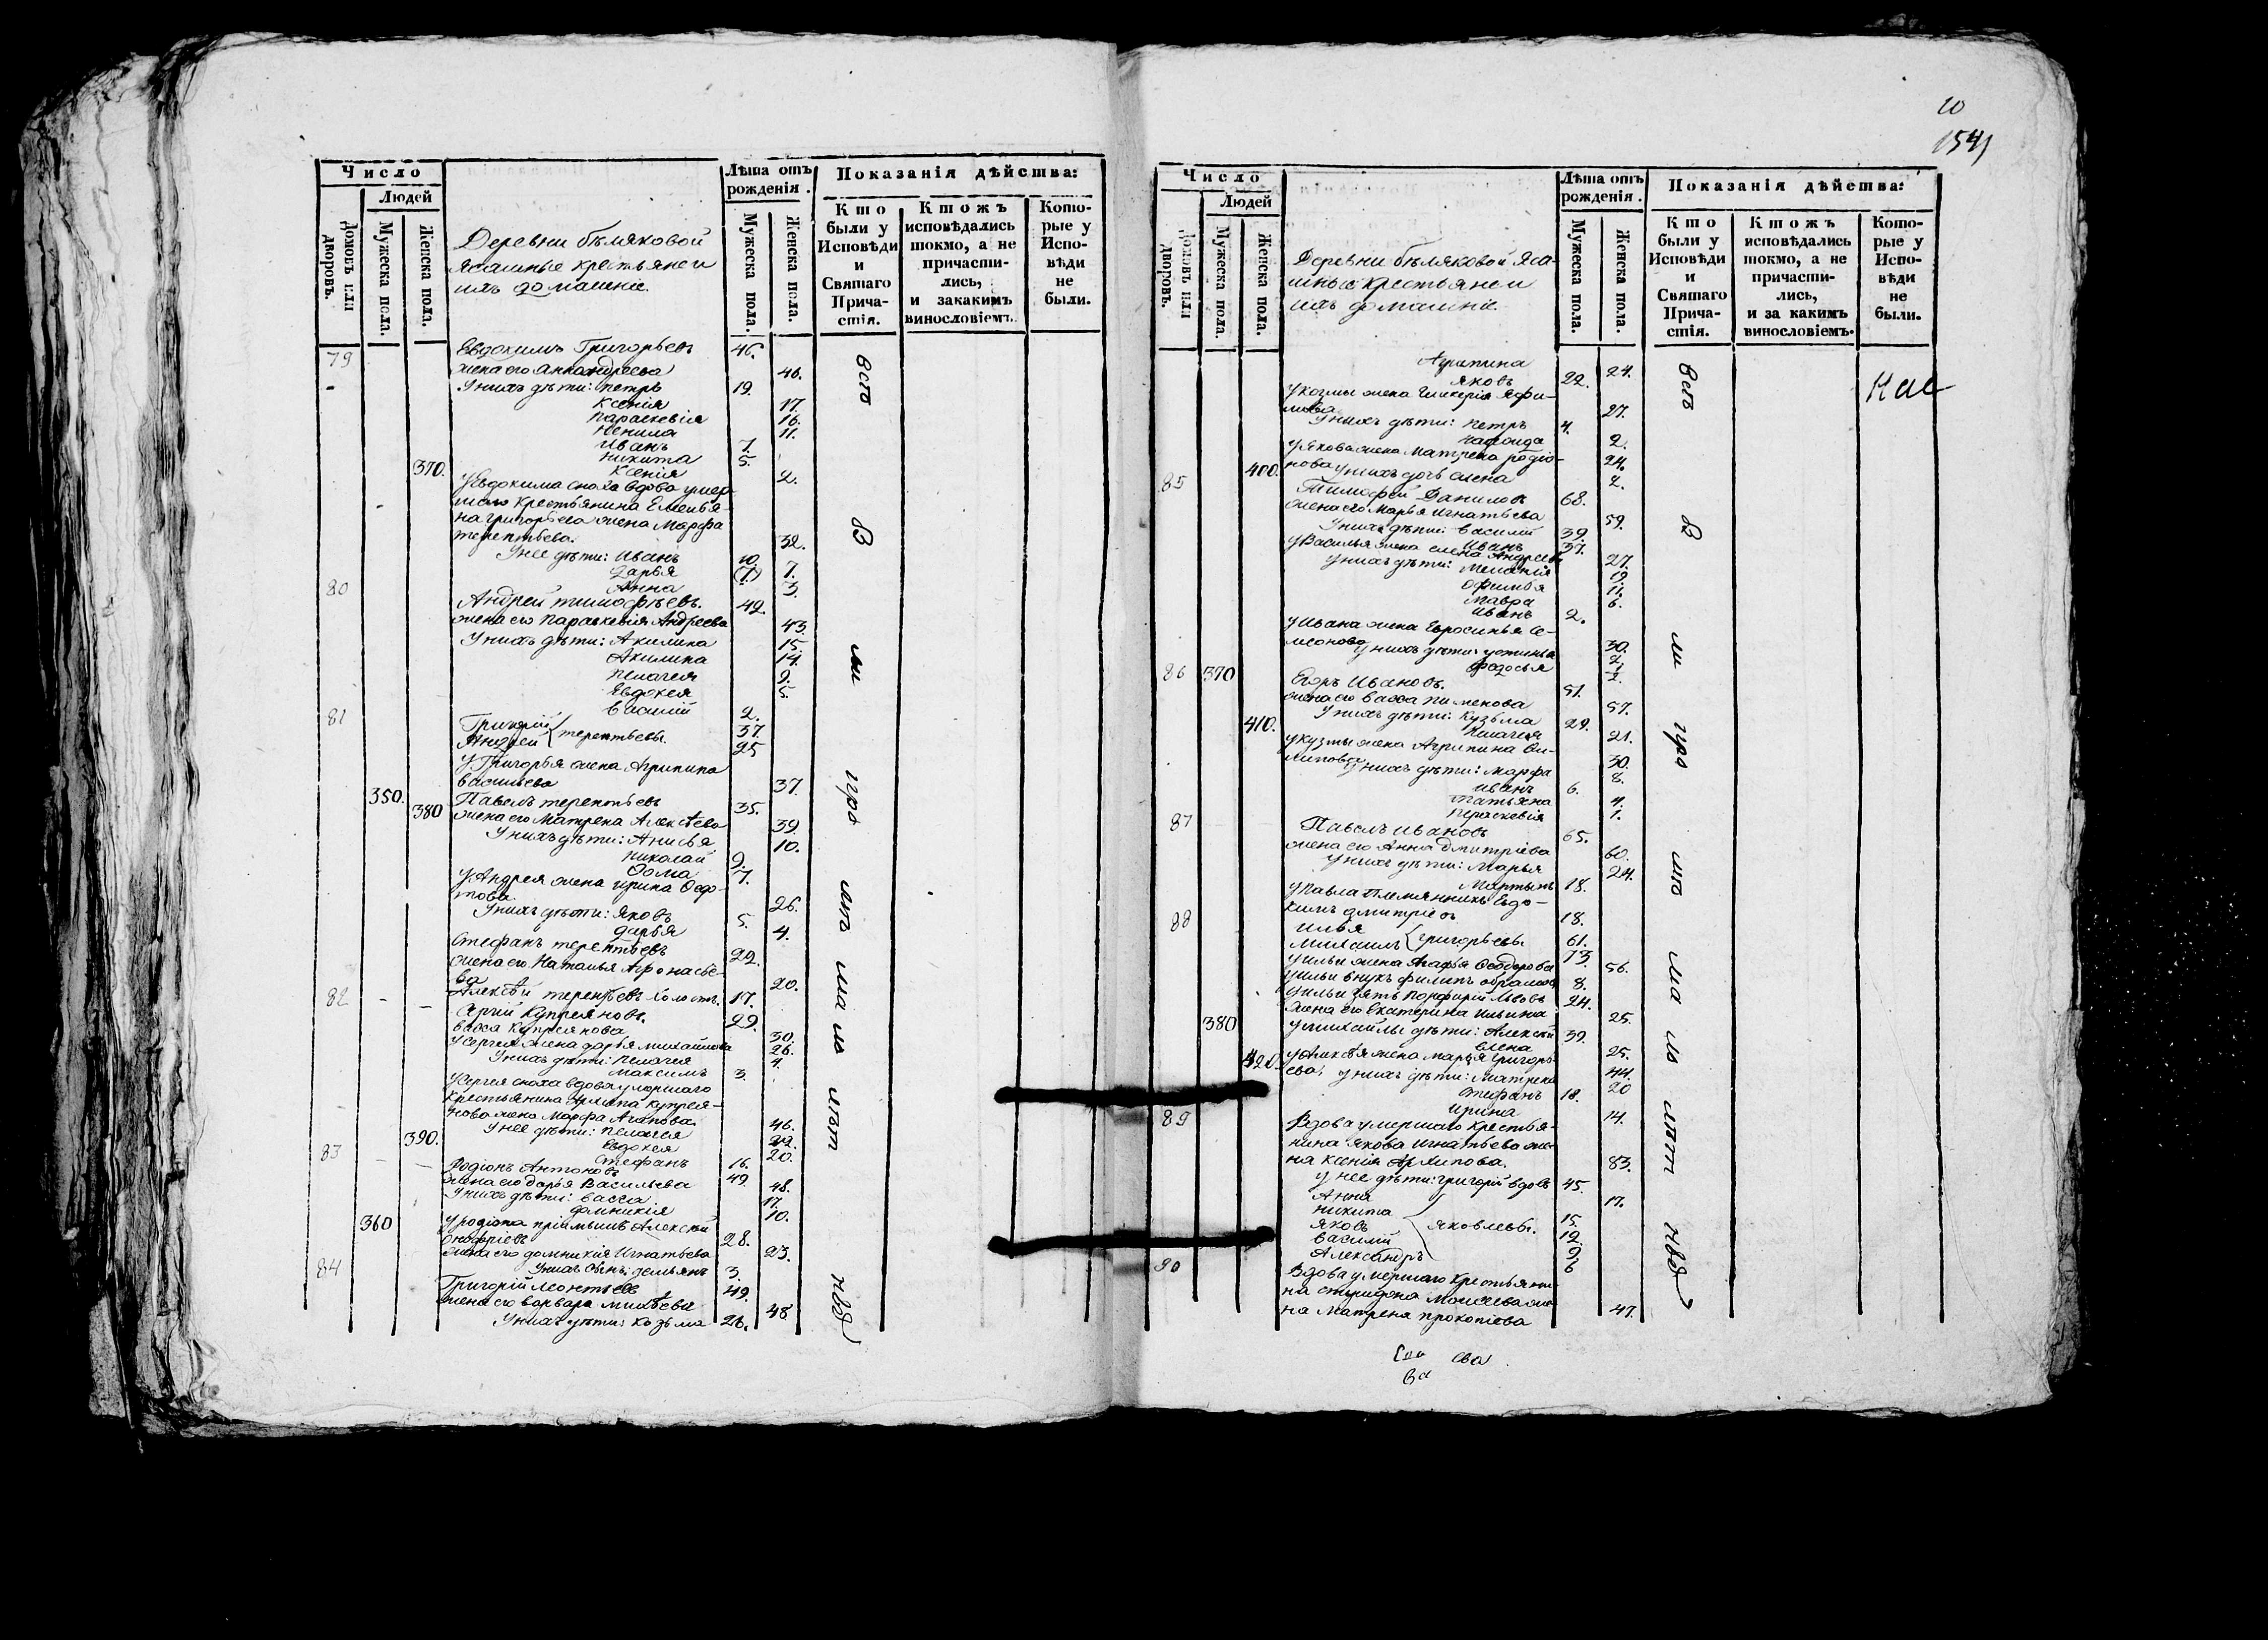 10
1541
Число
Людей
Домовъ или дворовъ.
Мужеска пола.
Женска пола.
Деревни бѣляковой
Ясашные крестьяне и
ихъ домашніе.
Лѣта отъ
рожденія.
Мужеска пола.
Женска пола.
Показанія дѣйства:
Кто
были у
Исповѣди
и
Святаго
Прича-
стія.
Ктожъ
исповѣдались
токмо, а не
причасти-
лись,
и закакимъ
винословіемъ.
Кото-
рые у
Испо-
вѣди
не
были.
79 Евдокимъ Григорьевъ 46.
жена его Анна Андреева 46.
У нихъ дѣти: петръ 19.
Ксенія 17.
Параскевія 16.
Ненила 11.
Иванъ 7.
никита 5.
370. Ксенія 2.
У Евдокима сноха вдова умер-
шаго крестьянина Емелья-
на григорьева жена Марфа
терентьева. 32.
У нее дѣти: Иванъ 10.
дарья (7) 7.
Анна 3.
80 Андрей тимофѣевъ. 42.
жена его Параскевія Андреева 43.
У нихъ дѣти: Акилина 15.
Акилина 14.
пелагея 9.
Евдокея 5.
василій 2.
81 Григорій 37.
Андрей терентьевы. 25
У Григорья жена Агрипина
васильева 37.
350. Павелъ терентьевъ 35.
380 жена его Матрена Алексѣева 39.
У нихъ дѣти: Анисья 10.
николай 9.
Ѳома 7.
У Андрея жена ирина Ѳедо-
това 26.
У нихъ дѣти: Яковъ 5.
дарья 4.
Стефанъ терентьевъ 22.
жена его Наталья Афонасье-
ва 20.
Алексѣй терентьевъ холостъ. 17.
82 Сергій Купреяновъ. 29.
васса Купреянова 30.
У Сергея жена дарья михайлова 26.
У нихъ дѣти: пелагея 4.
максимъ 3.
У Сергея сноха вдова умершаго
крестьянина купрея-
нова жена Марфа Агапова. 46.
У нее дѣти: пелагея 22.
390. Евдокея 20.
Стефанъ 16.
83 Родіонъ Антоновъ 49.
жена его дарья Васильева 48.
У нихъ дѣти: васса 17.
домникія 10.
360 У родіона пріимышъ Алексѣй
онофріевъ 28.
жена его домникія Игнатьева 23.
У нихъ сынъ: демьянъ 3.
84 Григорій Леонтьевъ 49.
жена его варвара михѣева 48.
У нихъ дѣти: козьма 26.
всѣ
в
ли
Число
Людей
Домовъ или дворовъ.
Мужеска пола.
Женска пола.
Деревни бѣляковой Яса-
шные крестьяне и
ихъ домашніе.
Лѣта отъ
рожденія.
Мужеска пола.
Женска пола.
Показанія дѣйства:
Кто
были у
Исповѣди
и
Святаго
Прича-
стія.
Ктожъ
исповѣдались
токмо, а не
причасти-
лись,
и за какимъ
винословіемъ.
Кото-
рые у
Испо-
вѣди
не
были.
Агрипина 24.
Яковъ 22.
У козмы жена Гликерія Яфи-
мова 27.
У нихъ дѣти: петръ 4.
2.
У Якова жена Матрена родіо- 24.
400. нова у нихъ дочь елена 2.
85 Тимофей Даниловъ 68.
жена его Марья Игнатьева 59.
У нихъ дѣти: василій 39.
Иванъ 37.
У Василья жена елена Андреева 27.
У нихъ дѣти: меланія 19.
Офимья 11.
мавра 6.
иванъ 2.
У Ивана жена Евросинья Се-
меонова 30.
У нихъ дѣти: устинья 2.
Федосья
86 370 Егоръ Ивановъ. 51.
жена его васса пименова 57.
410. У нихъ дѣти: кузьма 29.
пелагея 21.
У кузмы жена Агрипина Фи-
липова 30.
У нихъ дѣти: марфа 8.
иванъ 6.
Татьяна 4.
Пераскевія 1.
87 Павелъ ивановъ 65.
жена его Анна дмитріева 60.
У нихъ дѣти: марья 24.
Мартынъ 18.
У Павла племянникъ Евдо-
кимъ дмитріевъ 18.
88 илья 61.
михаилъ григорьевы. 73.
У ильи жена Агафья Ѳеодорова 56.
У ильи внукъ филипъ 8.
У ильи зять порфирій Львовъ 24.
жена его Екатерина ильина 25.
380 У михайлы дѣти: Алексѣй 39.
елена 25.
420. У Алексѣя жена марья Григорь-
ева. 44.
У нихъ дѣти: матрена 20
Стефанъ 18.
ирина 14.
89 Вдова умершаго крестья-
нина Якова игнатьева же-
на ксенія Архипова. 83.
У нее дѣти: григорій вдовъ 45.
Анна 17.
никита 15.
яковъ яковлевы. 12.
василій 9.
Александръ 6
90 Вдова умершаго крестьяни-
на спиридона Моисеева же-
на матрена прокопіева 47.
всѣ
в
ли